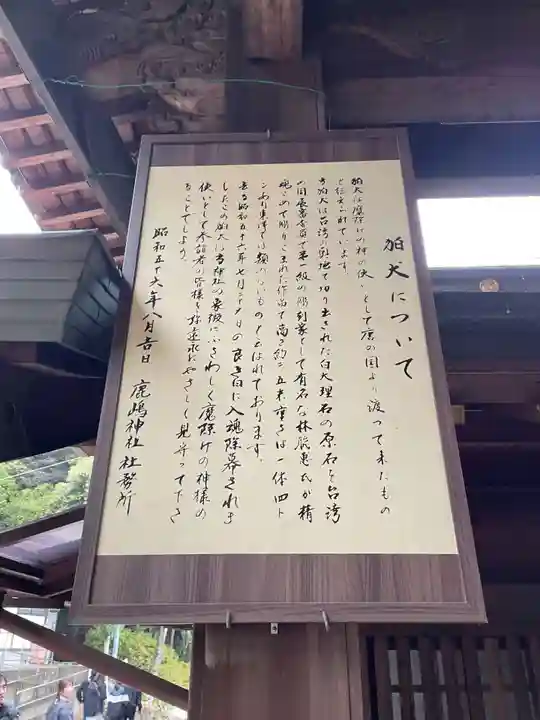 狛犬について
狛犬は魔除けの神の使いとして唐の国より渡って来たもの
と伝えられています。
当狛犬は台湾の奥地で切り出された白大理石の原石を台湾
の国展審査員で第一級の彫刻家として有名な林聡惠氏が精
魂こめて彫りこまれた作品で高さ約二・五米重さは一体四ト
ンあり東洋では類のないものと云われております。
去る昭和五十六年七月二十日の良き日に入魂除幕されま
したこの狛犬は当神社の象徴にふさわしく魔除けの神様の
使いとして参詣者の皆様を弥遠永にやさしく見守って下さ
ることでしょう。
昭和五十六年八月吉日 鹿嶋神社 社務所